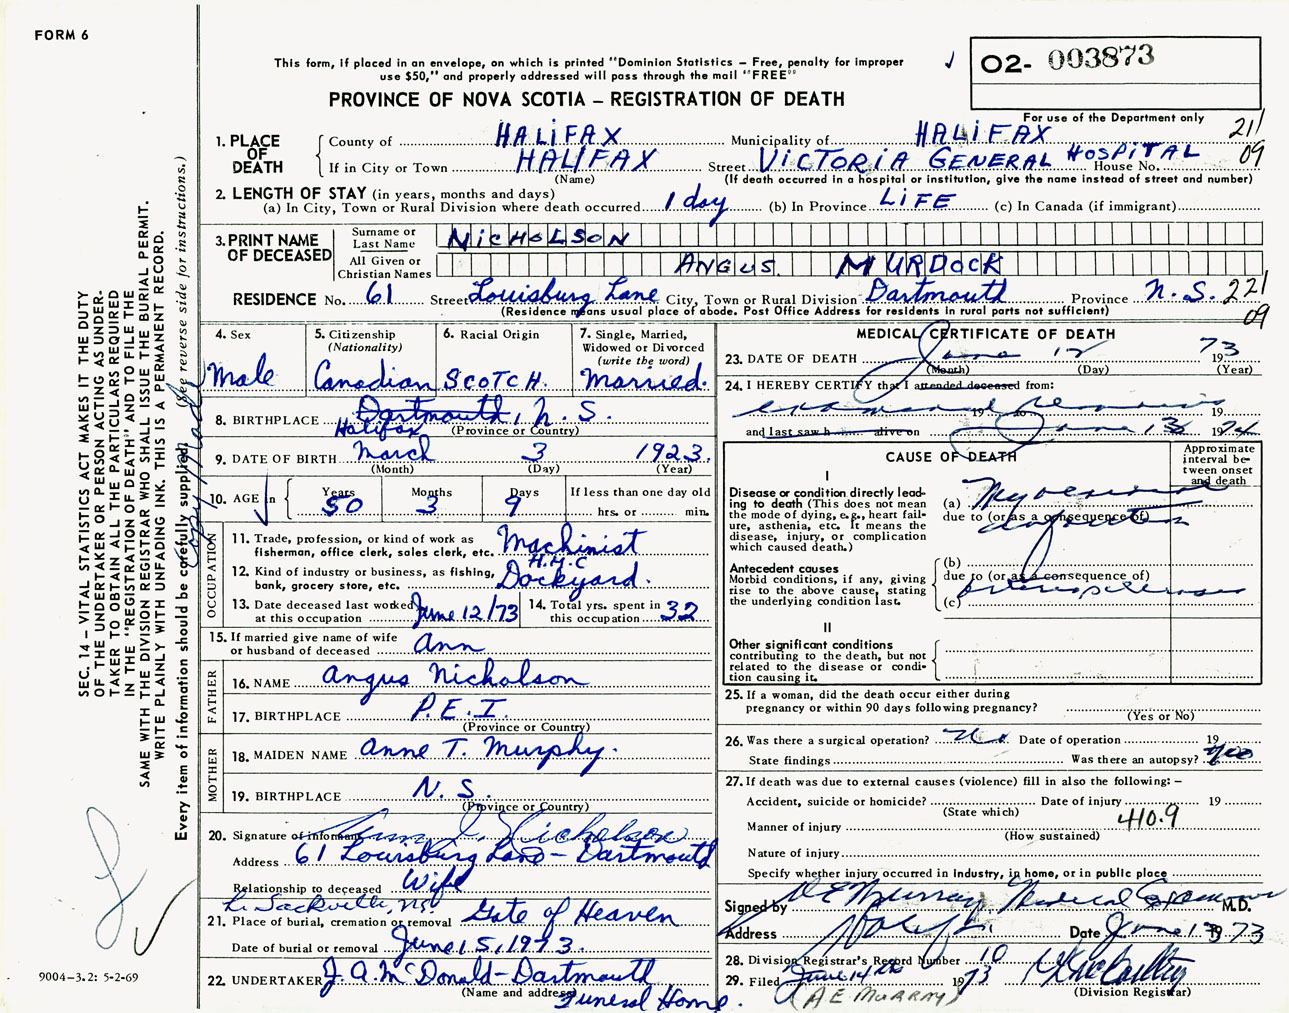 FORM 6
This form, if placed in an envelope, on which is printed "Dominion Statistics – Free, penalty for improper
use $50," and properly addressed will pass through the mail "FREE"
PROVINCE OF NOVA SCOTIA – REGISTRATION OF DEATH
O2- 003873
For use of the Department only
211
09
1. PLACE OF DEATH County of HALIFAX Municipality of HALIFAX
If in City or Town HALIFAX Street VICTORIA GENERAL HOSPITAL House No.
(Name) (If death occurred in a hospital or institution, give the name instead of street and number)
2. LENGTH OF STAY (in years, months and days)
(a) In City, Town or Rural Division where death occurred 1 day (b) In Province LIFE (c) In Canada (if immigrant)
3. PRINT NAME OF DECEASED Surname or Last Name NICHOLSON
All Given or Christian Names ANGUS MURDOCK
RESIDENCE No. 61 Street Louisburg Lane City, Town or Rural Division Dartmouth Province N.S. 221
(Residence means usual place of abode. Post Office Address for residents in rural parts not sufficient) 09
4. Sex Male
5. Citizenship (Nationality) Canadian
6. Racial Origin SCOTCH.
7. Single, Married, Widowed or Divorced (write the word) Married.
8. BIRTHPLACE Dartmouth, N.S.
Halifax (Province or Country)
9. DATE OF BIRTH March 3 1923.
(Month) (Day) (Year)
10. AGE in Years 50 Months 3 Days 9 If less than one day old hrs. or min.
OCCUPATION
11. Trade, profession, or kind of work as fisherman, office clerk, sales clerk, etc. Machinist
12. Kind of industry or business, as fishing, bank, grocery store, etc. H.M.C Dockyard.
13. Date deceased last worked at this occupation June 12/73
14. Total yrs. spent in this occupation 32
15. If married give name of wife or husband of deceased Ann
FATHER
16. NAME Angus Nicholson
17. BIRTHPLACE P.E.I.
(Province or Country)
MOTHER
18. MAIDEN NAME Anne T. Murphy.
19. BIRTHPLACE N.S.
(Province or Country)
20. Signature of informant Ann Nicholson
Address 61 Louisburg Lane – Dartmouth
Relationship to deceased Wife
L. Sackville, NS.
21. Place of burial, cremation or removal Gate of Heaven
Date of burial or removal June 15, 1973.
22. UNDERTAKER J. A. McDonald – Dartmouth
(Name and address) Funeral Home.
MEDICAL CERTIFICATE OF DEATH
23. DATE OF DEATH June 12 1973
(Month) (Day) (Year)
24. I HEREBY CERTIFY that I attended deceased from:
examined remains 19 to 19
and last saw h alive on June 13 19
CAUSE OF DEATH
Approximate interval between onset and death
I
Disease or condition directly leading to death (This does not mean the mode of dying, e.g., heart failure, asthenia, etc. It means the disease, injury, or complication which caused death.)
(a) Myocardial
due to (or as a consequence of) infarction
Antecedent causes
Morbid conditions, if any, giving rise to the above cause, stating the underlying condition last.
(b)
due to (or as a consequence of)
(c) arteriosclerosis
II
Other significant conditions
contributing to the death, but not related to the disease or condition causing it.
25. If a woman, did the death occur either during pregnancy or within 90 days following pregnancy?
(Yes or No)
26. Was there a surgical operation? No Date of operation 19
State findings Was there an autopsy?
27. If death was due to external causes (violence) fill in also the following: –
Accident, suicide or homicide? Date of injury 19
(State which)
Manner of injury 410.9
(How sustained)
Nature of injury
Specify whether injury occurred in industry, in home, or in public place
Signed by A E Murray Medical Examiner M.D.
Address Halifax Date June 13 1973
28. Division Registrar's Record Number 10
29. Filed June 14th 1973
(Division Registrar)
(A E MURRAY)
SEC. 14 – VITAL STATISTICS ACT MAKES IT THE DUTY
OF THE UNDERTAKER OR PERSON ACTING AS UNDER-
TAKER TO OBTAIN ALL THE PARTICULARS REQUIRED
IN THE "REGISTRATION OF DEATH" AND TO FILE THE
SAME WITH THE DIVISION REGISTRAR WHO SHALL ISSUE THE BURIAL PERMIT.
WRITE PLAINLY WITH UNFADING INK. THIS IS A PERMANENT RECORD.
Every item of information should be carefully supplied. (See reverse side for instructions.)
Copy made
9004–3.2: 5-2-69